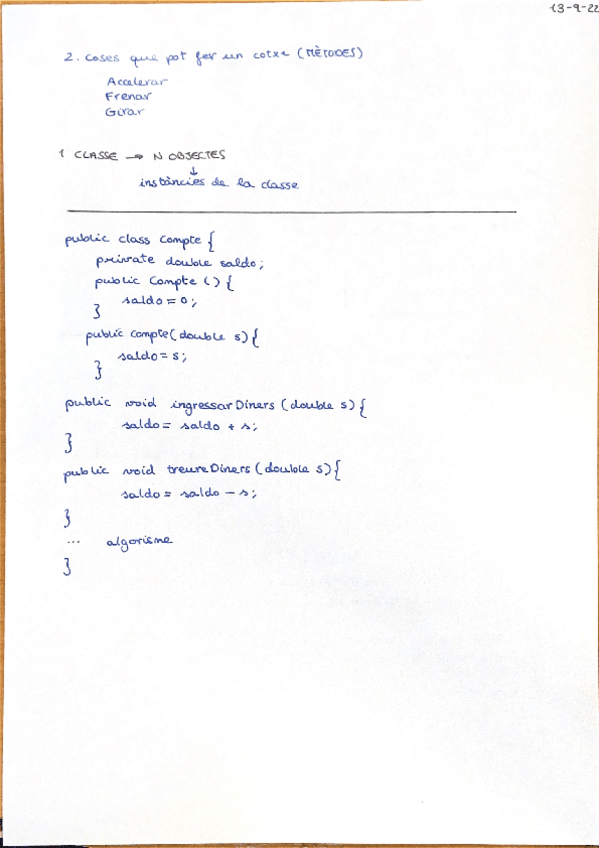 13-9-22
2. Coses que pot fer un cotxe (MÈTODES)
Accelerar
Frenar
Girar
1 CLASSE → N OBJECTES
↓
instàncies de la classe
public class Compte {
private double saldo;
public Compte () {
saldo = 0;
}
public Compte (double s) {
saldo = s;
}
public void ingressarDiners (double s) {
saldo = saldo + s;
}
public void treureDiners (double s) {
saldo = saldo - s;
}
... algorisme
}